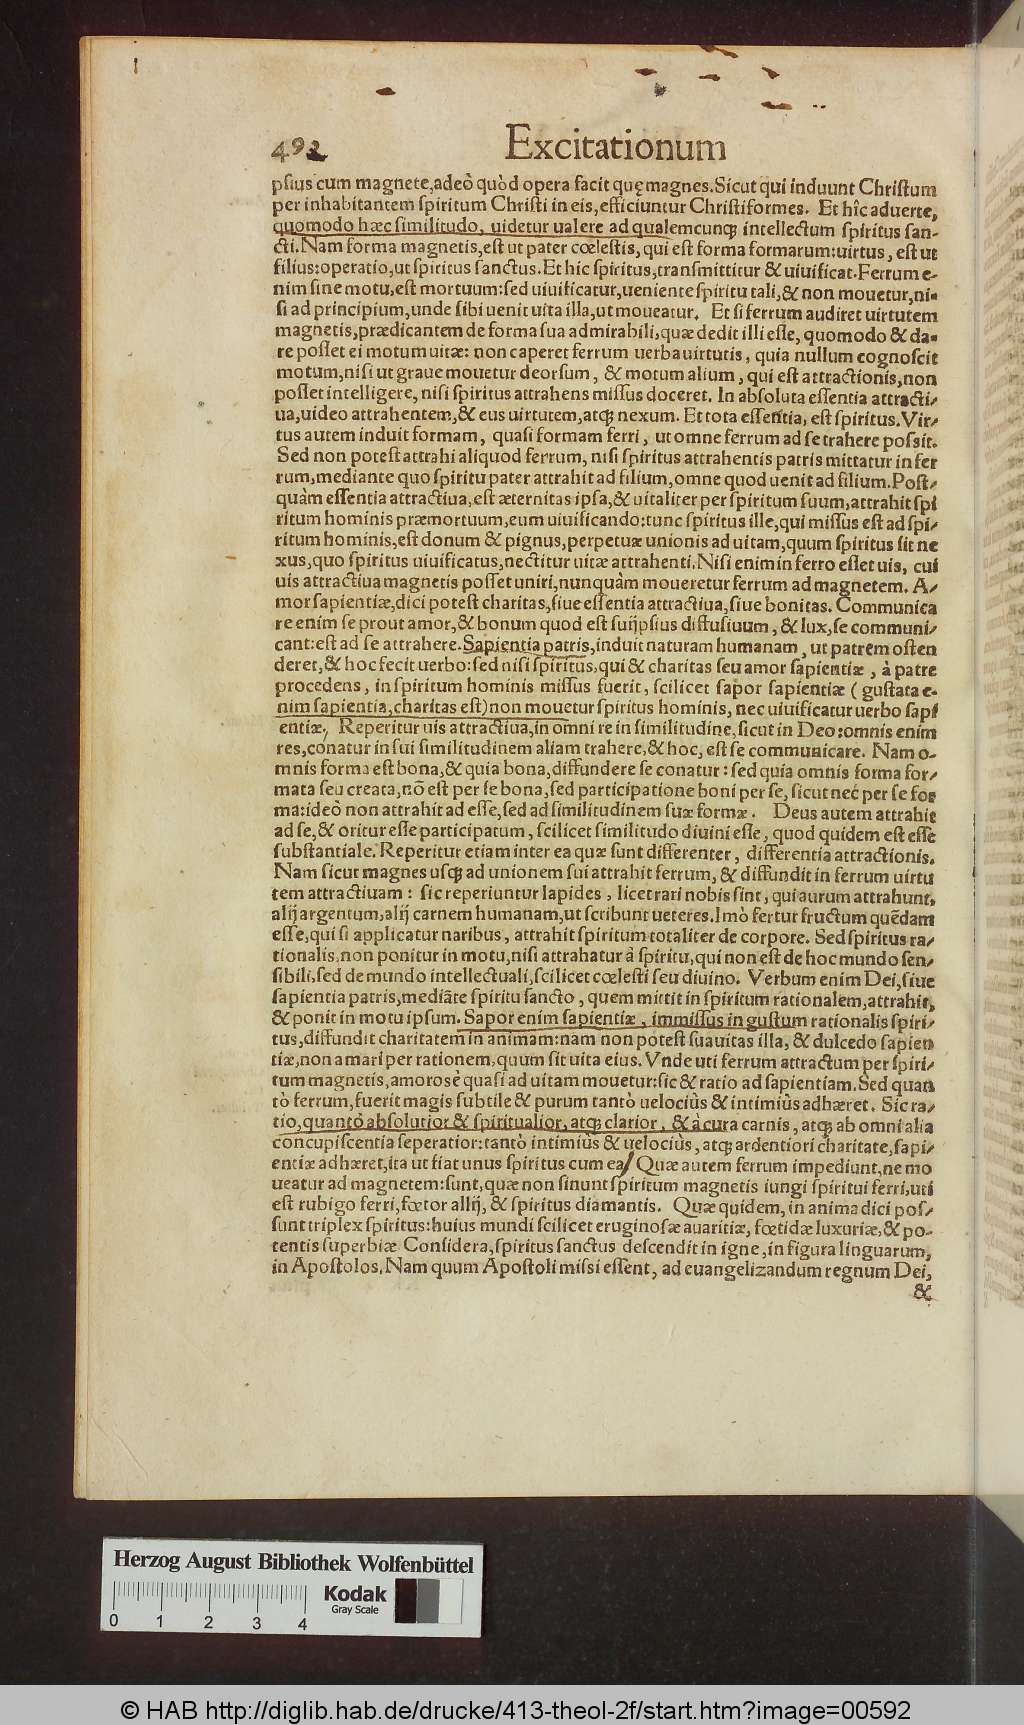 492
Excitationum
psius cum magnete, adeò quòd opera facit quę magnes. Sicut qui induunt Christum
per inhabitantem spiritum Christi in eis, efficiuntur Christiformes. Et hîc aduerte,
quomodo hæc similitudo, uidetur ualere ad qualemcunq; intellectum spiritus san-
cti. Nam forma magnetis, est ut pater cœlestis, qui est forma formarum: uirtus, est ut
filius: operatio, ut spiritus sanctus. Et hic spiritus, transmittitur & uiuificat. Ferrum e-
nim sine motu, est mortuum: sed uiuificatur, ueniente spiritu tali, & non mouetur, ni-
si ad principium, unde sibi uenit uita illa, ut moueatur. Et si ferrum audiret uirtutem
magnetis, prædicantem de forma sua admirabili, quæ dedit illi esse, quomodo & da-
re posset ei motum uitæ: non caperet ferrum uerba uirtutis, quia nullum cognoscit
motum, nisi ut graue mouetur deorsum, & motum alium, qui est attractionis, non
posset intelligere, nisi spiritus attrahens missus doceret. In absoluta essentia attracti-
ua, uideo attrahentem, & eus uirtutem, atq; nexum. Et tota essentia, est spiritus. Vir-
tus autem induit formam, quasi formam ferri, ut omne ferrum ad se trahere possit.
Sed non potest attrahi aliquod ferrum, nisi spiritus attrahentis patris mittatur in fer
rum, mediante quo spiritu pater attrahit ad filium, omne quod uenit ad filium. Post-
quàm essentia attractiua, est æternitas ipsa, & uitaliter per spiritum suum, attrahit spi
ritum hominis præmortuum, eum uiuificando: tunc spiritus ille, qui missus est ad spi-
ritum hominis, est donum & pignus, perpetuæ unionis ad uitam, quum spiritus sit ne
xus, quo spiritus uiuificatus, nectitur uitæ attrahenti. Nisi enim in ferro esset uis, cui
uis attractiua magnetis posset uniri, nunquàm moueretur ferrum ad magnetem. A-
mor sapientiæ, dici potest charitas, siue essentia attractiua, siue bonitas. Communica
re enim se prout amor, & bonum quod est suijpsius diffusiuum, & lux, se communi-
cant: est ad se attrahere. Sapientia patris, induit naturam humanam, ut patrem osten
deret, & hoc fecit uerbo: sed nisi spiritus, qui & charitas seu amor sapientiæ, à patre
procedens, in spiritum hominis missus fuerit, scilicet sapor sapientiæ (gustata e-
nim sapientia, charitas est) non mouetur spiritus hominis, nec uiuificatur uerbo sapi
entiæ, Reperitur uis attractiua, in omni re in similitudine, sicut in Deo: omnis enim
res, conatur in sui similitudinem aliam trahere, & hoc, est se communicare. Nam o-
mnis forma est bona, & quia bona, diffundere se conatur: sed quia omnis forma for-
mata seu creata, nõ est per se bona, sed participatione boni per se, sicut nec per se for
ma: ideò non attrahit ad esse, sed ad similitudinem suæ formæ. Deus autem attrahit
ad se, & oritur esse participatum, scilicet similitudo diuini esse, quod quidem est esse
substantiale. Reperitur etiam inter ea quæ sunt differenter, differentia attractionis.
Nam sicut magnes usq; ad unionem sui attrahit ferrum, & diffundit in ferrum uirtu
tem attractiuam: sic reperiuntur lapides, licet rari nobis sint, qui aurum attrahunt,
alij argentum, alij carnem humanam, ut scribunt ueteres. Imò fertur fructum quẽdam
esse, qui si applicatur naribus, attrahit spiritum totaliter de corpore. Sed spiritus ra-
tionalis, non ponitur in motu, nisi attrahatur à spiritu, qui non est de hoc mundo sen-
sibili, sed de mundo intellectuali, scilicet cœlesti seu diuino. Verbum enim Dei, siue
sapientia patris, mediãte spiritu sancto, quem mittit in spiritum rationalem, attrahit,
& ponit in motu ipsum. Sapor enim sapientiæ, immissus in gustum rationalis spiri-
tus, diffundit charitatem in animam: nam non potest suauitas illa, & dulcedo sapien
tiæ, non amari per rationem, quum sit uita eius. Vnde uti ferrum attractum per spiri-
tum magnetis, amorosè quasi ad uitam mouetur: sic & ratio ad sapientiam. Sed quan
tò ferrum, fuerit magis subtile & purum tantò uelociùs & intimiùs adhæret. Sic ra-
tio, quantò absolutior & spiritualior, atq; clarior, & à cura carnis, atq; ab omni alia
concupiscentia seperatior: tantò intimiùs & uelociùs, atq; ardentiori charitate, sapi-
entiæ adhæret, ita ut fiat unus spiritus cum ea/ Quæ autem ferrum impediunt, ne mo
ueatur ad magnetem: sunt, quæ non sinunt spiritum magnetis iungi spiritui ferri, uti
est rubigo ferri, fœtor allij, & spiritus diamantis. Quæ quidem, in anima dici pos-
sunt triplex spiritus: huius mundi scilicet eruginosæ auaritiæ, fœtidæ luxuriæ, & po-
tentis superbiæ Considera, spiritus sanctus descendit in igne, in figura linguarum,
in Apostolos, Nam quum Apostoli missi essent, ad euangelizandum regnum Dei,
&
Herzog August Bibliothek Wolfenbüttel
Kodak
Gray Scale
0 1 2 3 4
© HAB http://diglib.hab.de/drucke/413-theol-2f/start.htm?image=00592